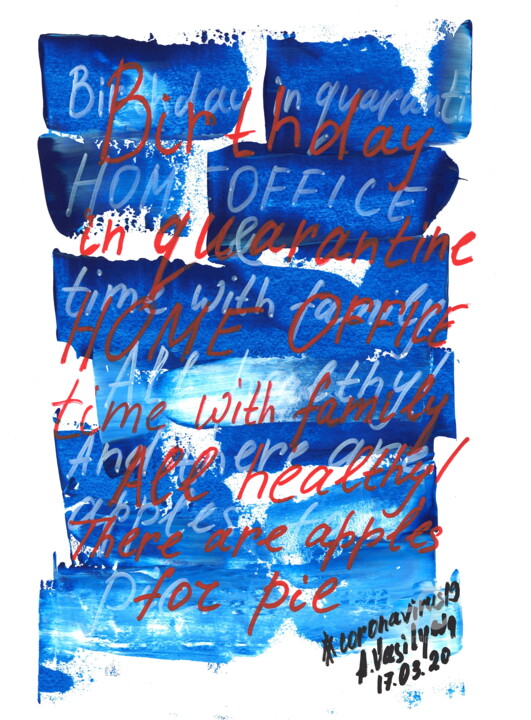 Birthday in quaranti
Birthday
HOME OFFICE
in quarantine
time with family
HOME OFFICE
All healthy!
time with family
And there are
All healthy!
apples
There are apples
for pie
#coronavirus19
17.03.20